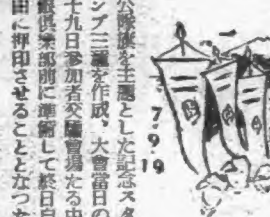 公隊旗を主題とした記念スタ
ンプ三種を作成、大會當日の
十九日參加者交驩會場たる中
銀倶樂部前に準備して終日自
由に押印させることとなつた
7.9.19